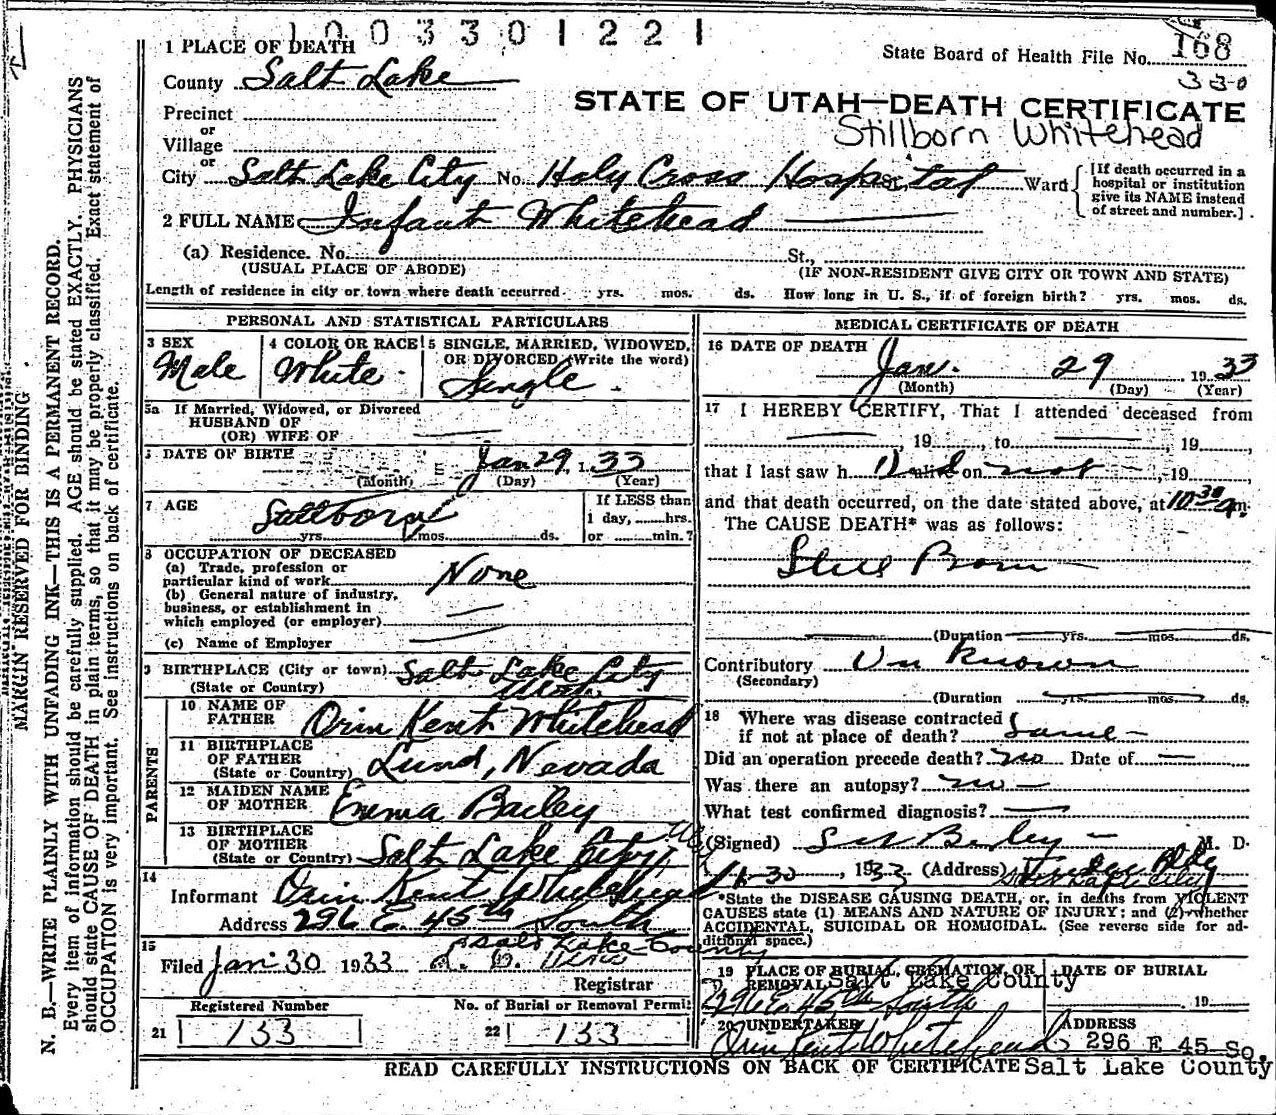 1003301221
1 PLACE OF DEATH
State Board of Health File No. 168
330
County Salt Lake
STATE OF UTAH—DEATH CERTIFICATE
Precinct
or
Stillborn Whitehead
Village
or
City Salt Lake City No. Holy Cross Hospital Ward
[If death occurred in a hospital or institution give its NAME instead of street and number.]
2 FULL NAME Infant Whitehead
(a) Residence. No. St.,
(USUAL PLACE OF ABODE) (IF NON-RESIDENT GIVE CITY OR TOWN AND STATE)
Length of residence in city or town where death occurred yrs. mos. ds. How long in U. S., if of foreign birth? yrs. mos. ds.
PERSONAL AND STATISTICAL PARTICULARS
3 SEX Male
4 COLOR OR RACE White
5 SINGLE, MARRIED, WIDOWED, OR DIVORCED (Write the word) Single
5a If Married, Widowed, or Divorced
HUSBAND OF
(OR) WIFE OF
DATE OF BIRTH Jan 29, 1 33
(Month) (Day) (Year)
7 AGE Stillborn
yrs. mos. ds.
If LESS than
1 day, hrs.
or min.?
8 OCCUPATION OF DECEASED
(a) Trade, profession or
particular kind of work None
(b) General nature of industry,
business, or establishment in
which employed (or employer)
(c) Name of Employer
9 BIRTHPLACE (City or town) Salt Lake City
(State or Country) Utah
PARENTS
10 NAME OF FATHER Orin Kent Whitehead
11 BIRTHPLACE OF FATHER (State or Country) Lund, Nevada
12 MAIDEN NAME OF MOTHER Emma Bailey
13 BIRTHPLACE OF MOTHER (State or Country) Salt Lake City,
14
Informant Orin Kent Whitehead
Address 296 E. 45th South
Salt Lake County
15
Filed Jan 30 1933
Registrar
Registered Number
21 133
No. of Burial or Removal Permit
22 133
MEDICAL CERTIFICATE OF DEATH
16 DATE OF DEATH
Jan. 29 1933
(Month) (Day) (Year)
17 I HEREBY CERTIFY, That I attended deceased from
, 19 , to , 19
that I last saw h Did alive on not , 19
and that death occurred, on the date stated above, at 10 30 am.
The CAUSE DEATH* was as follows:
Still Born
(Duration yrs. mos. ds.
Contributory Unknown
(Secondary)
(Duration yrs. mos. ds.
18 Where was disease contracted
if not at place of death? Same
Did an operation precede death? no Date of
Was there an autopsy? no
What test confirmed diagnosis?
(Signed) M. D.
1-30, 1933 (Address)
Salt Lake City
*State the DISEASE CAUSING DEATH, or, in deaths from VIOLENT
CAUSES state (1) MEANS AND NATURE OF INJURY; and (2) whether
ACCIDENTAL, SUICIDAL OR HOMICIDAL. (See reverse side for ad-
ditional space.)
19 PLACE OF BURIAL, CREMATION, OR REMOVAL Salt Lake County
296 E. 45th South
DATE OF BURIAL
19
20 UNDERTAKER
Orin Kent Whitehead
ADDRESS
296 E 45 So.
Salt Lake County
READ CAREFULLY INSTRUCTIONS ON BACK OF CERTIFICATE
MARGIN RESERVED FOR BINDING
N. B.—WRITE PLAINLY WITH UNFADING INK—THIS IS A PERMANENT RECORD.
Every item of information should be carefully supplied. AGE should be stated EXACTLY. PHYSICIANS
should state CAUSE OF DEATH in plain terms, so that it may be properly classified. Exact statement of
OCCUPATION is very important. See instructions on back of certificate.